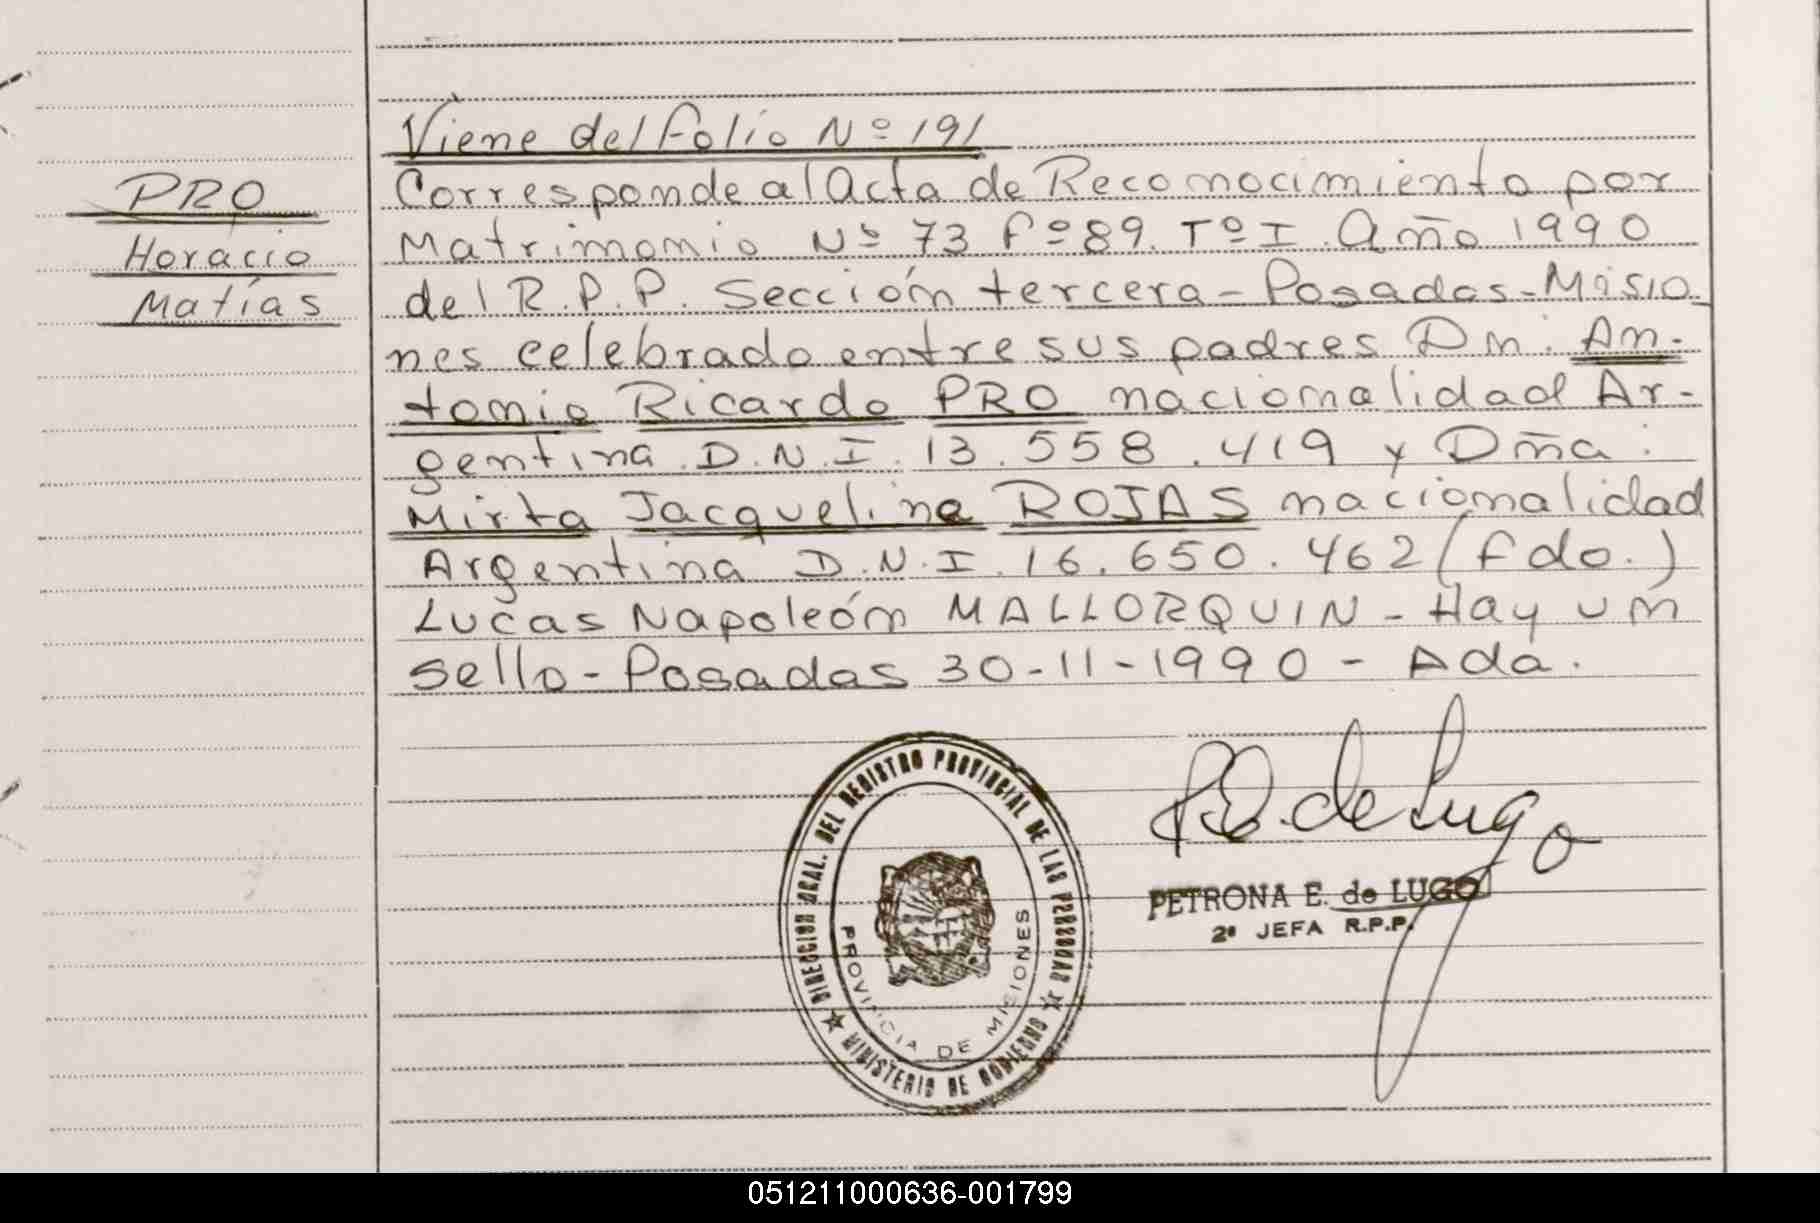 Viene del folio Nº 191
PRO
Horacio
Matías
Corresponde al Acta de Reconocimiento por
Matrimonio Nº 73 fº 89. Tº I. Año 1990
del R.P.P. Sección tercera - Posadas - Misio-
nes celebrado entre sus padres Dn. An-
tonio Ricardo PRO nacionalidad Ar-
gentina D.N.I. 13.558.419 y Dña.
Mirta Jacqueline ROJAS nacionalidad
Argentina D.N.I. 16.650.462 (fdo.)
Lucas Napoleón MALLORQUIN - Hay un
sello - Posadas 30-11-1990 - Ada.
DIRECCION GRAL. DEL REGISTRO PROVINCIAL DE LAS PERSONAS
MINISTERIO DE GOBIERNO
PROVINCIA DE MISIONES
de Lugo
PETRONA E. de LUGO
2ª JEFA R.P.P.
051211000636-001799